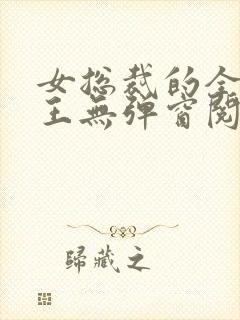 女总裁的全
王无弹窗阅
歸藏之